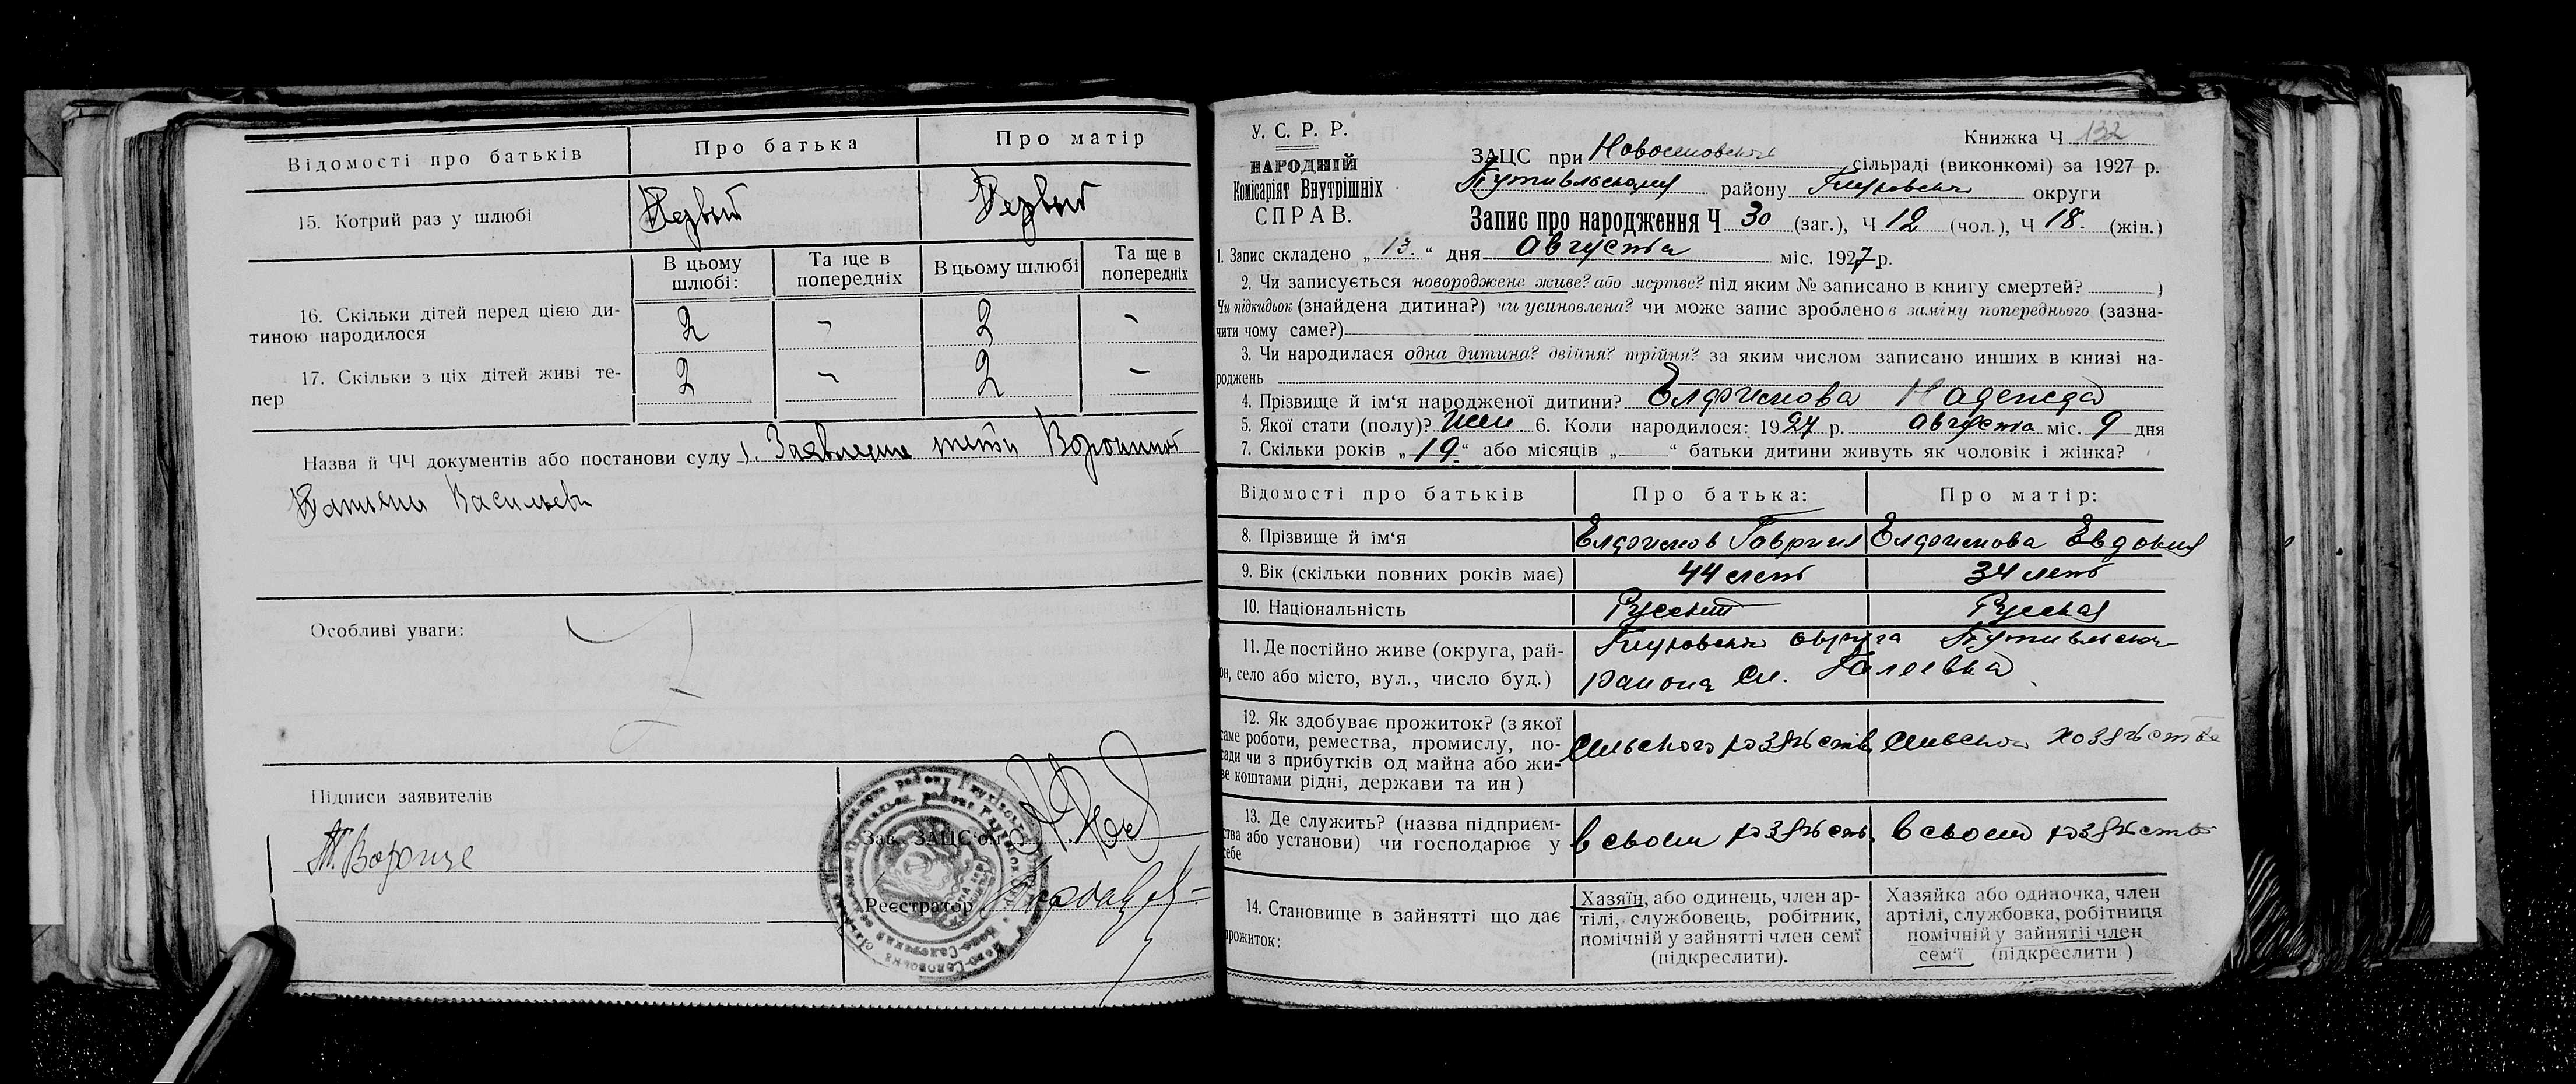 Відомості про батьків Про батька Про матір
15. Котрий раз у шлюбі Первый Первый
В цьому шлюбі: Та ще в попередніх В цьому шлюбі Та ще в попередніх
16. Скільки дітей перед цією ди-
тиною народилося 2 - 2 -
17. Скільки з ціх дітей живі те-
пер 2 - 2 -
Назва й ЧЧ документів або постанови суду 1. Заявление тетки Ворониной
Татьяны Васильевн
Особливі уваги:
Підписи заявителів
Зав. ЗАЦС'ом
Т. Воронце
Реєстратор
У. С. Р. Р.
НАРОДНІЙ
Комісаріят Внутрішніх
СПРАВ.
Книжка Ч 132
ЗАЦС при сільраді (виконкомі) за 1927 р.
Путивльского району Глуховской округи
Запис про народження Ч 30 (заг.), Ч 12 (чол.), Ч 18. (жін.)
1. Запис складено „13.“ дня Августа міс. 1927 р.
2. Чи записується новороджене живе? або мертве? під яким № записано в книгу смертей? )
Чи підкидьок (знайдена дитина?) чи усиновлена? чи може запис зроблено в заміну попереднього (зазна-
чити чому саме?)
3. Чи народилася одна дитина? двійня? трійня? за яким числом записано инших в книзі на-
роджень
4. Прізвище й ім‘я народженої дитини? Елфимова Надежда
5. Якої стати (полу)? Жен 6. Коли народилося: 1927 р. августа міс. 9 дня
7. Скільки років „19.“ або місяців „ “ батьки дитини живуть як чоловік і жінка?
Відомості про батьків Про батька: Про матір:
8. Прізвище й ім‘я Елфимов Гавриил Елфимова Евдокия
9. Вік (скільки повних років має) 44 лет 34 лет
10. Національність Русский Русская
11. Де постійно живе (округа, рай- Глуховской округа Путивльского
он, село або місто, вул., число буд.) района сл.
12. Як здобуває прожиток? (з якої
саме роботи, ремества, промислу, по-
сади чи з прибутків од майна або жи-
ве коштами рідні, держави та ин)
Сельского хозяйств Сельского хозяйства
13. Де служить? (назва підприєм-
ства або установи) чи господарює у
себе
в своем хозяйств в своем хозяйстве
14. Становище в зайнятті що дає
прожиток:
Хазяїн, або одинець, член ар-
тілі, службовець, робітник,
помічній у зайнятті член семї
(підкреслити).
Хазяйка або одиночка, член
артілі, службовка, робітниця
помічній у зайнятії член
сем‘ї (підкреслити)